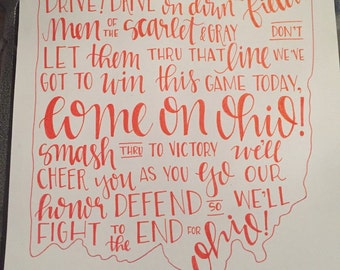 DRIVE! DRIVE on down field
Men OF THE scarlet & GRAY DON'T
LET them THRU THAT line WE'VE
GOT TO win this GAME TODAY,
come on Ohio!
smash THRU TO VICTORY we'll
CHEER you AS YOU go OUR
honor DEFEND SO WE'LL
FIGHT TO THE END FOR
Ohio!